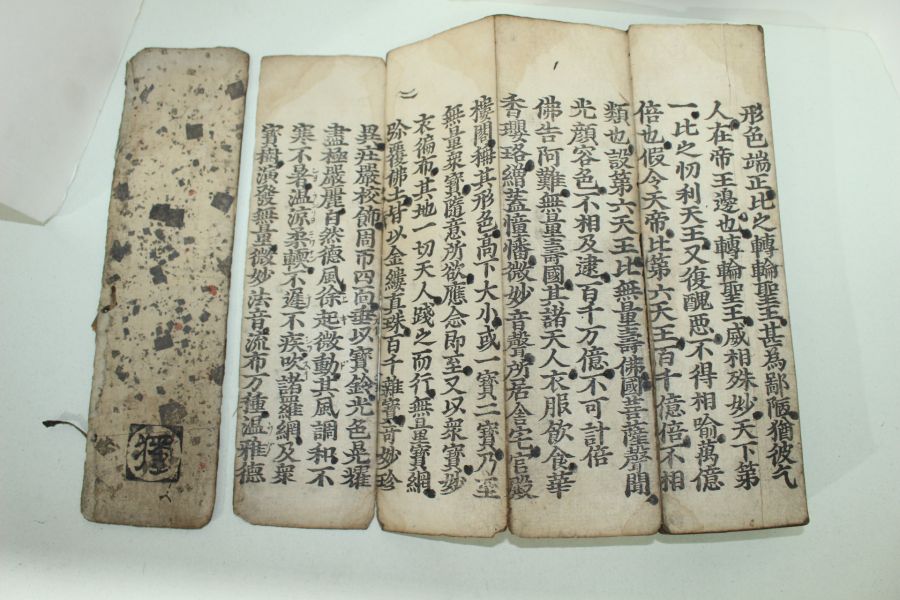 形色端正比之轉輪聖王甚為鄙陋猶彼气
人在帝王邊也轉輪聖王威相殊妙天下第
一比之忉利天王又復醜惡不得相喻萬億
倍也假令天帝比第六天王百千億倍不相
類也設第六天王比無量壽佛國菩薩聲聞
光顏容色不相及逮百千万億不可計倍
佛告阿難無量壽國其諸天人衣服飲食華
香瓔珞繒蓋幢幡微妙音聲所居舍宅宮殿
樓閣稱其形色高下大小或一寶二寶乃至
無量衆寶隨意所欲應念即至又以衆寶妙
衣徧布其地一切天人踐之而行無量寶網
弥覆佛土皆以金縷真珠百千雜寶奇妙珍
異莊嚴校飾周帀四面垂以寶鈴光色晃耀
盡極嚴麗自然德風徐起微動其風調和不
寒不暑溫涼柔輭不遲不疾吹諸羅網及衆
寶樹演發無量微妙法音流布万種溫雅德